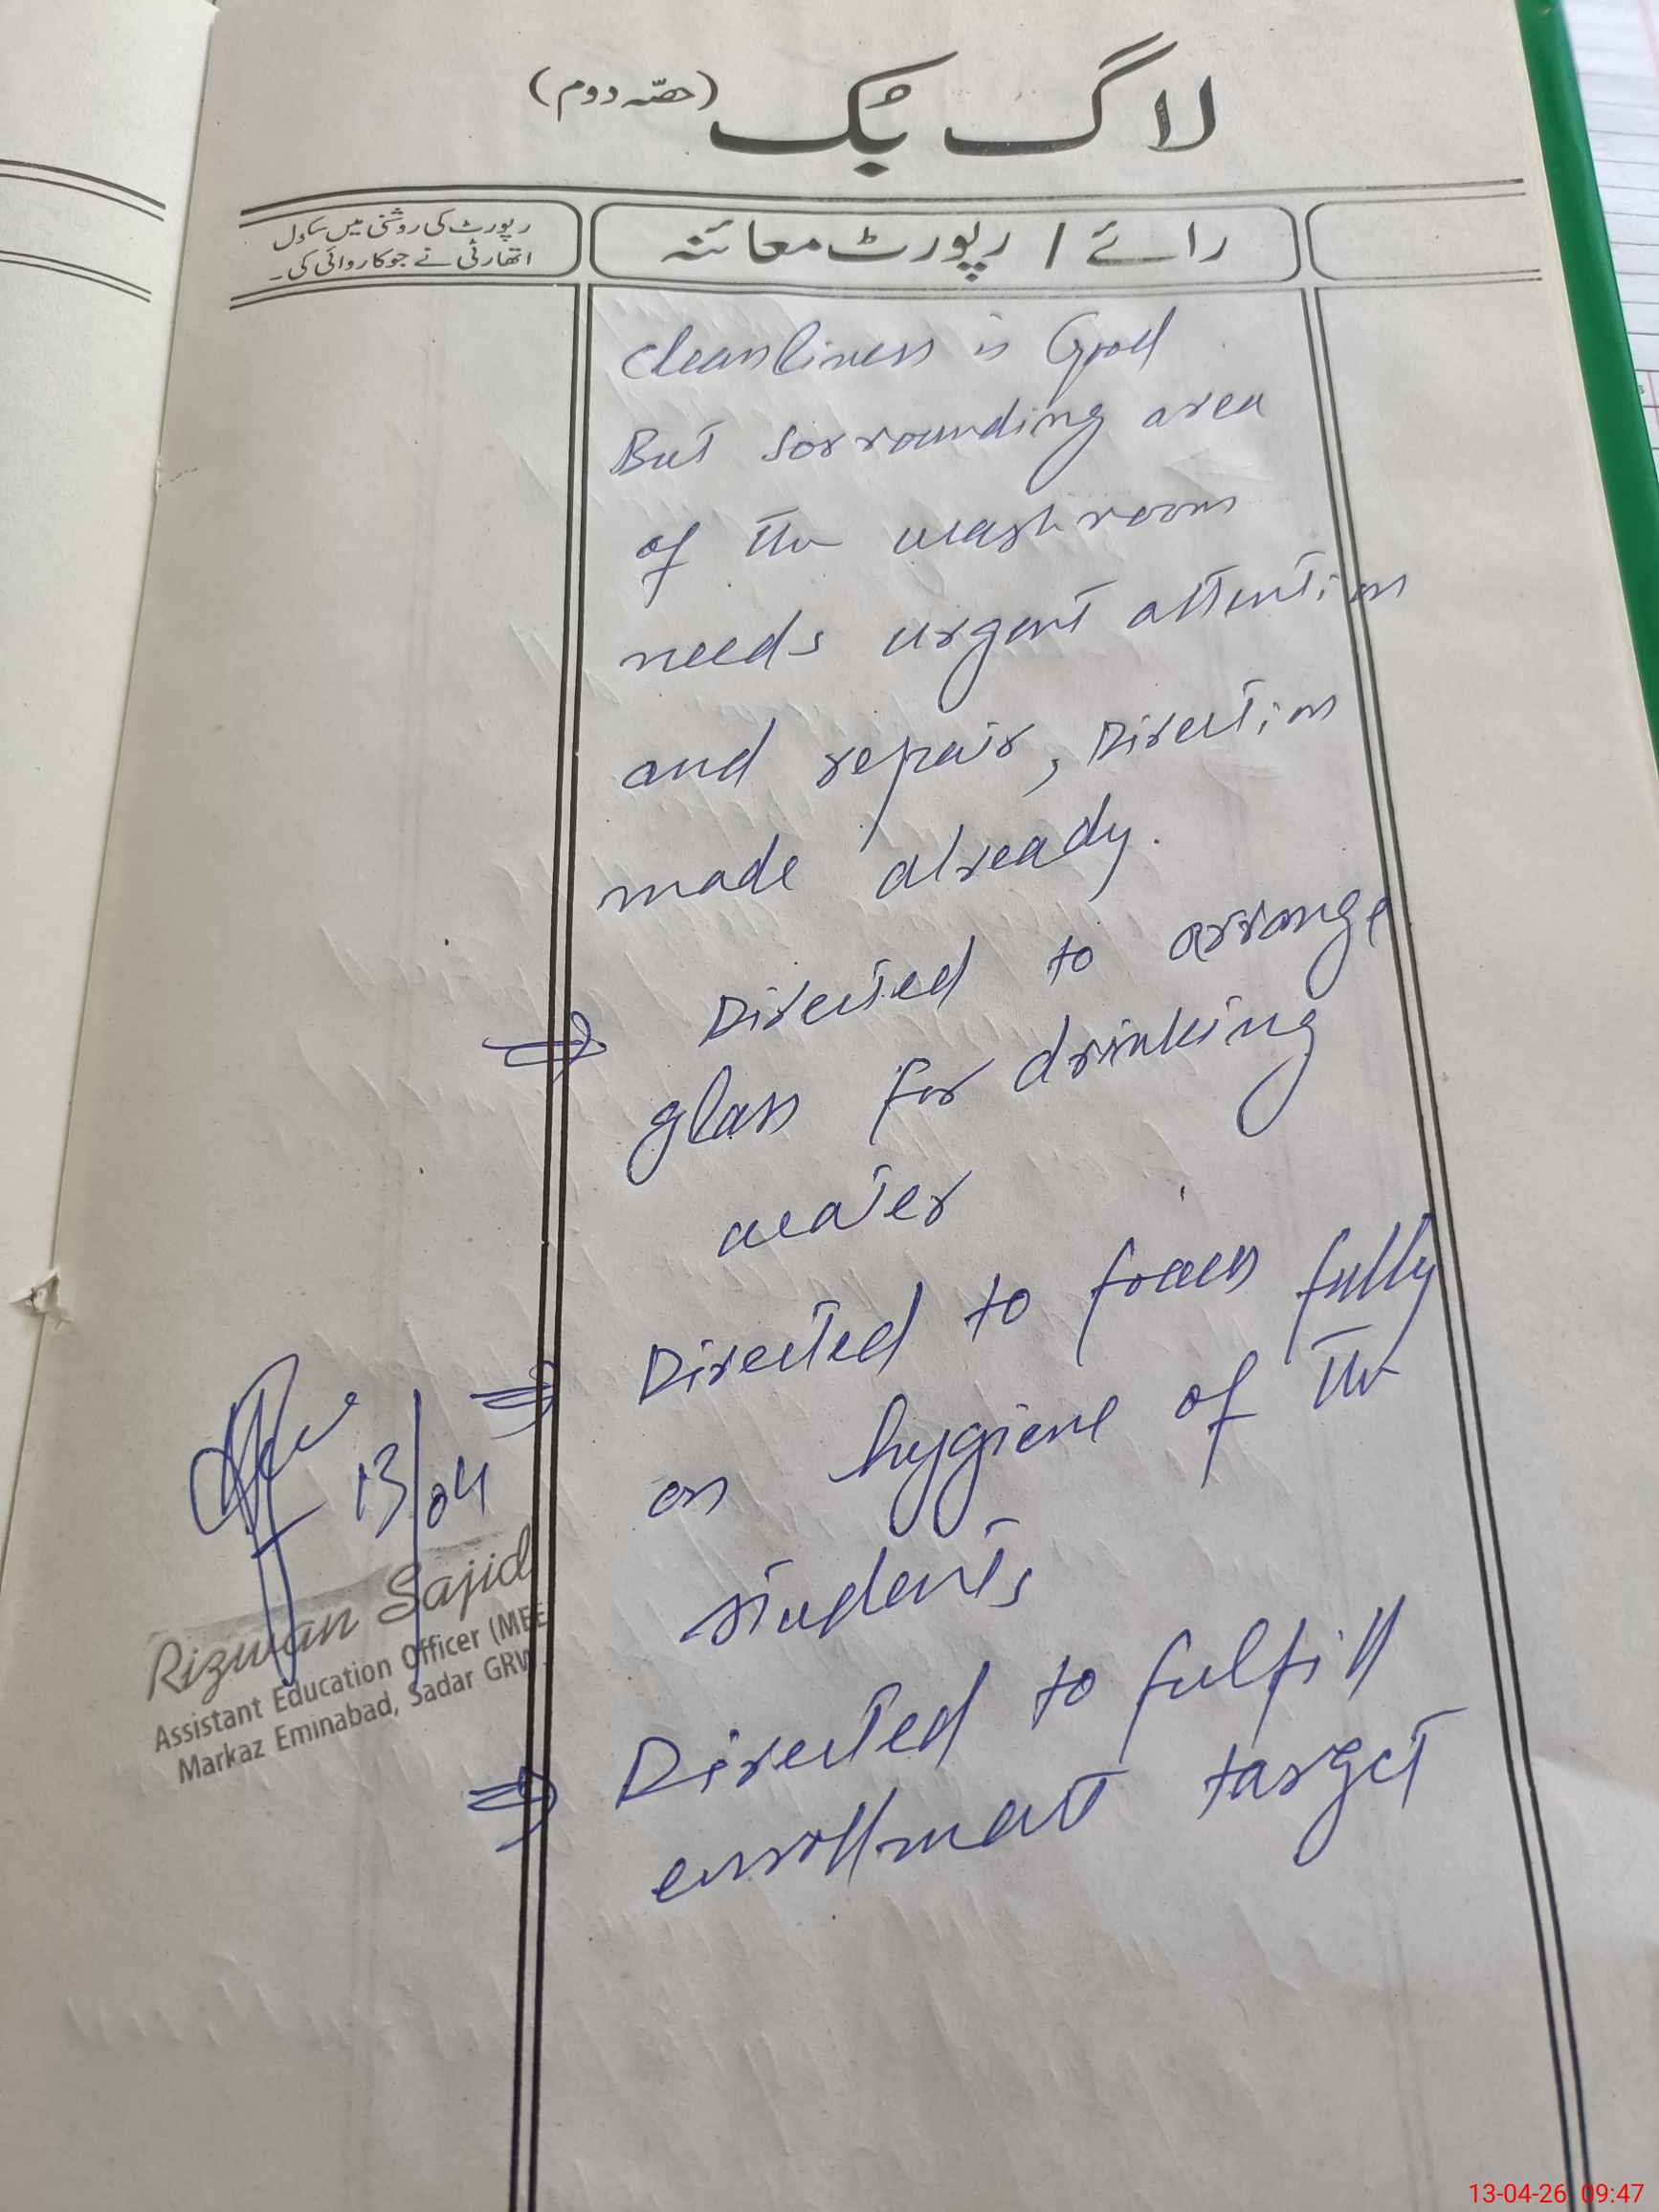 لاگ بک (حصّہ دوم)
رائے / رپورٹ معائنہ
رپورٹ کی روشنی میں سکول
اتھارٹی نے جو کاروائی کی۔
cleanliness is Good
But sorrounding area
of the washroom
needs urgent attention
and repair, Direction
made already.
⇒ Directed to arrange
glass for drinking
water
⇒ Directed to focus fully
on hygiene of the
students
⇒ Directed to fulfill
enrollment target
13/04
Rizwan Sajid
Assistant Education Officer (MEE
Markaz Eminabad, Sadar GRW
13-04-26 09:47